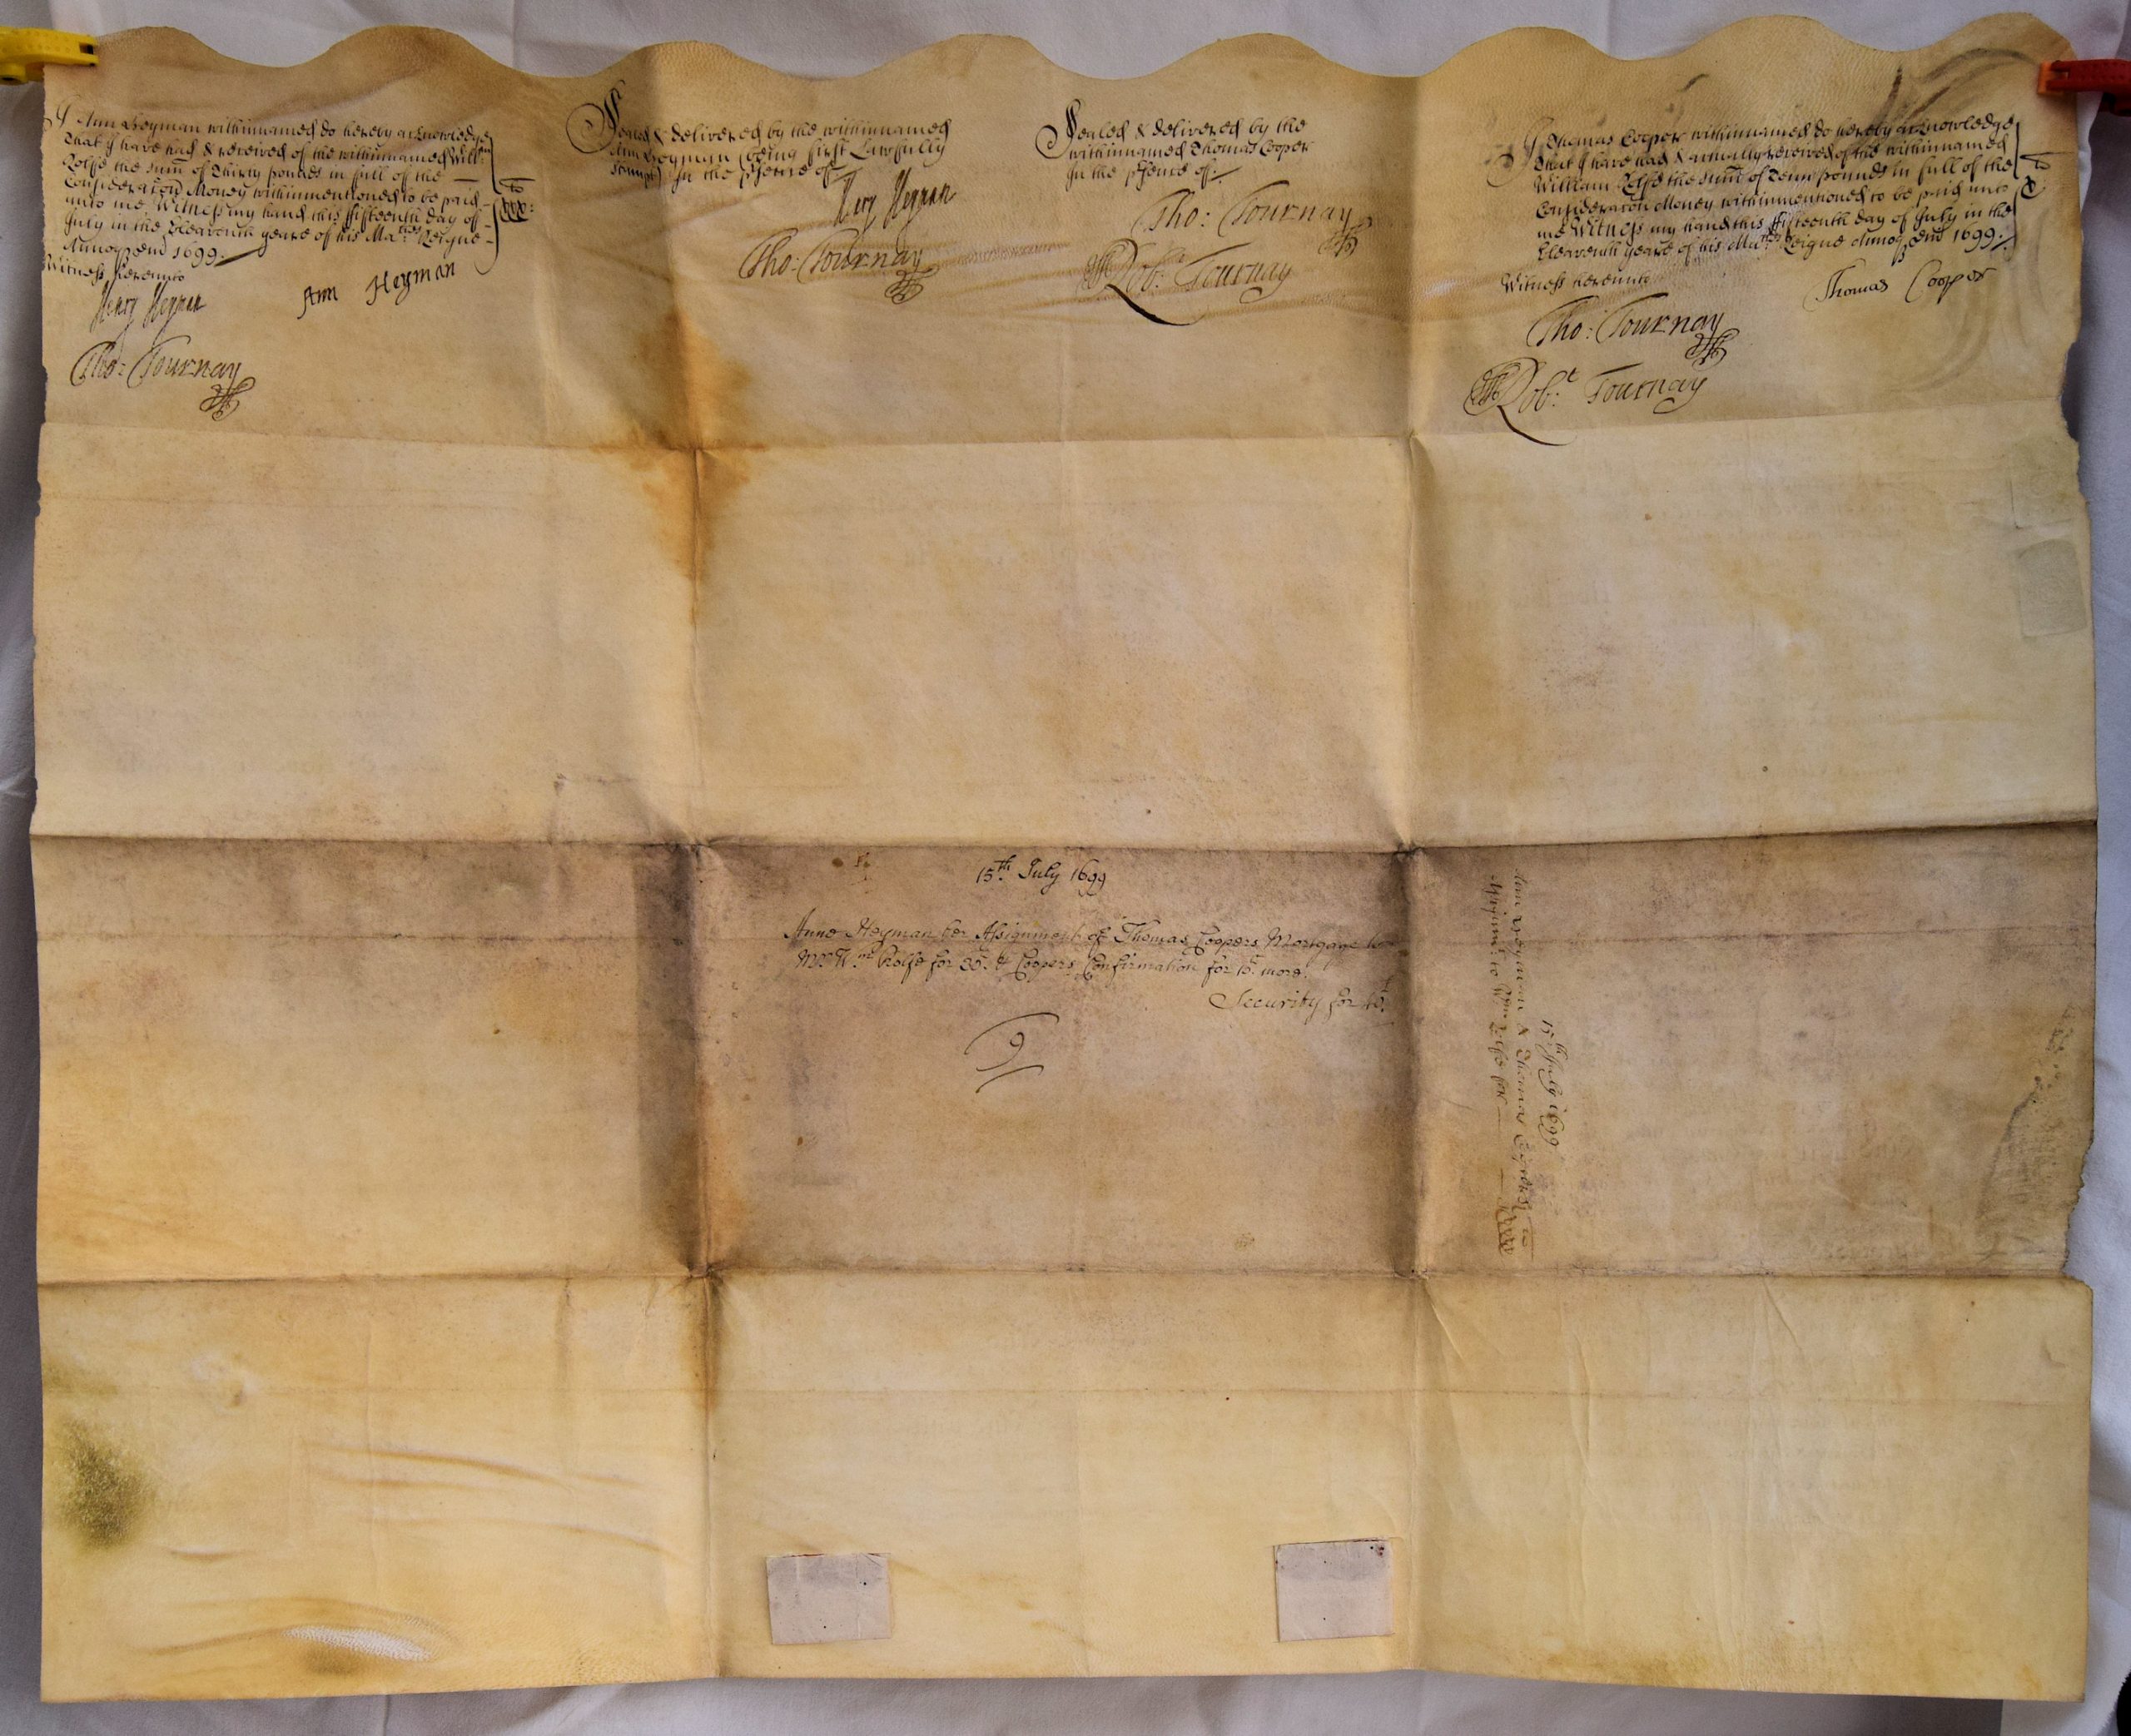 I Ann Heyman withinnamed do hereby acknowledge
That I have had & received of the withinnamed Will
Rolfe the sum̄ of Thirty pounds in full of the
Consideracōn Money withinmentioned to be paid
unto me Witness my hand this ffifteenth day of
July in the Eleaventh yeare of his Maties Reigne
Annoq Dni 1699.
Witness hereunto
Ann Heyman
Henry Heyman
Tho: Tournay
Sealed & delivered by the withinnamed
Ann Heyman (being first Lawfully
Stampt) In the p̄sence of
Henry Heyman
Tho: Tournay
Sealed & delivered by the
withinnamed Thomas Cooper
In the p̄sence of:
Tho: Tournay
Robt. Tournay
I Thomas Cooper withinnamed do hereby acknowledge
That I have had & actually received of the withinnamed
William Rolfe the sum̄ of Tenn pounds in full of the
Consideracōn Money withinmentioned to be paid unto
me Witness my hand this ffifteenth day of July in the
Eleaventh yeare of his Maties Reigne Annoq Dni 1699.
Witness hereunto
Thomas Cooper
Tho: Tournay
Robt. Tournay
15th July 1699
Anne Heyman her Assignment of Thomas Coopers Mortgage to
Mr Wm Rolfe for 30£ & Coopers Confirmation for 10£ more.
Security for 40£
9
15th July 1699
Ann Heyman & Thomas Coopers
Assignmt to Wm Rolfe for